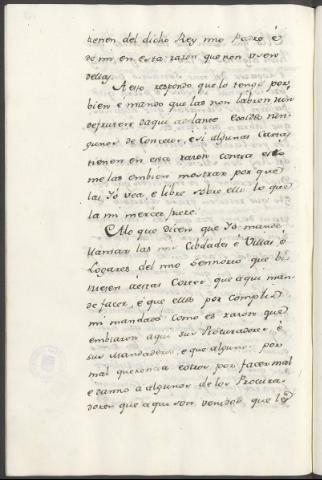 tienen del dicho Rey mio Padre é
de mi en esta razon que non usen
dellas.
A esto respondo que lo tengo por
bien e mando que las non labren nin
de aqui adelante nin-
gunos de Concejos, e si algunas Cartas
tienen en esta razon contra esto
me las embien mostrar por que
las Yó vea, é libre sobre ello lo que
la mi merced fuere.
A lo que dicen que Yo mandé
llamar las mis Cibdades é Villas é
Logares del mio Sennorio que bi-
niesen á estas Cortes que aqui man-
de facer, é que ellos por complir
mi mandado como es razon que
embiaron aqui sus Procuradores, é
sus Mandaderos, e que algunos por
mal querencia é otros por facer mal
e danno á algunos de los Procura-
dores que aqui son venidos que los